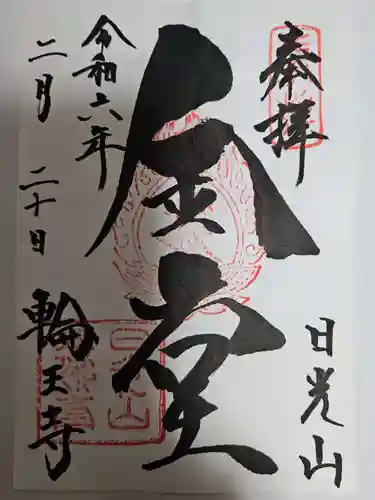 奉拝
日光山
金堂
令和六年
二月二十日
輪王寺